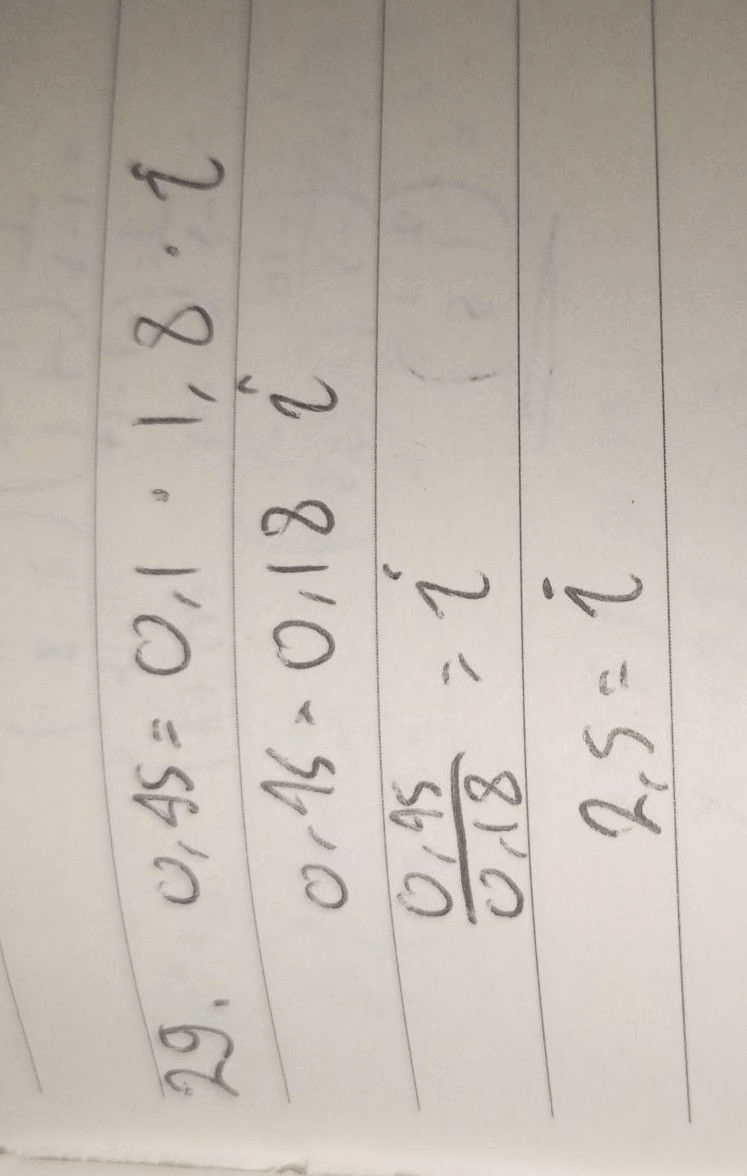 29. 0,45 = 0,1 · 1,8 · i
0,45 = 0,18 i
0,45/0,18 = i
2,5 = i